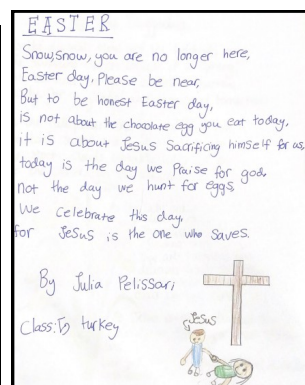 EASTER
Snow,snow, you are no longer here,
Easter day, Please be near,
But to be honest Easter day,
is not about the chocolate egg you eat today,
it is about Jesus Sacrificing himself for us,
today is the day we Praise for god,
not the day we hunt for eggs,
We celebrate this day,
for Jesus is the one who saves.
By Julia Pelissari
Class: turkey
Jesus